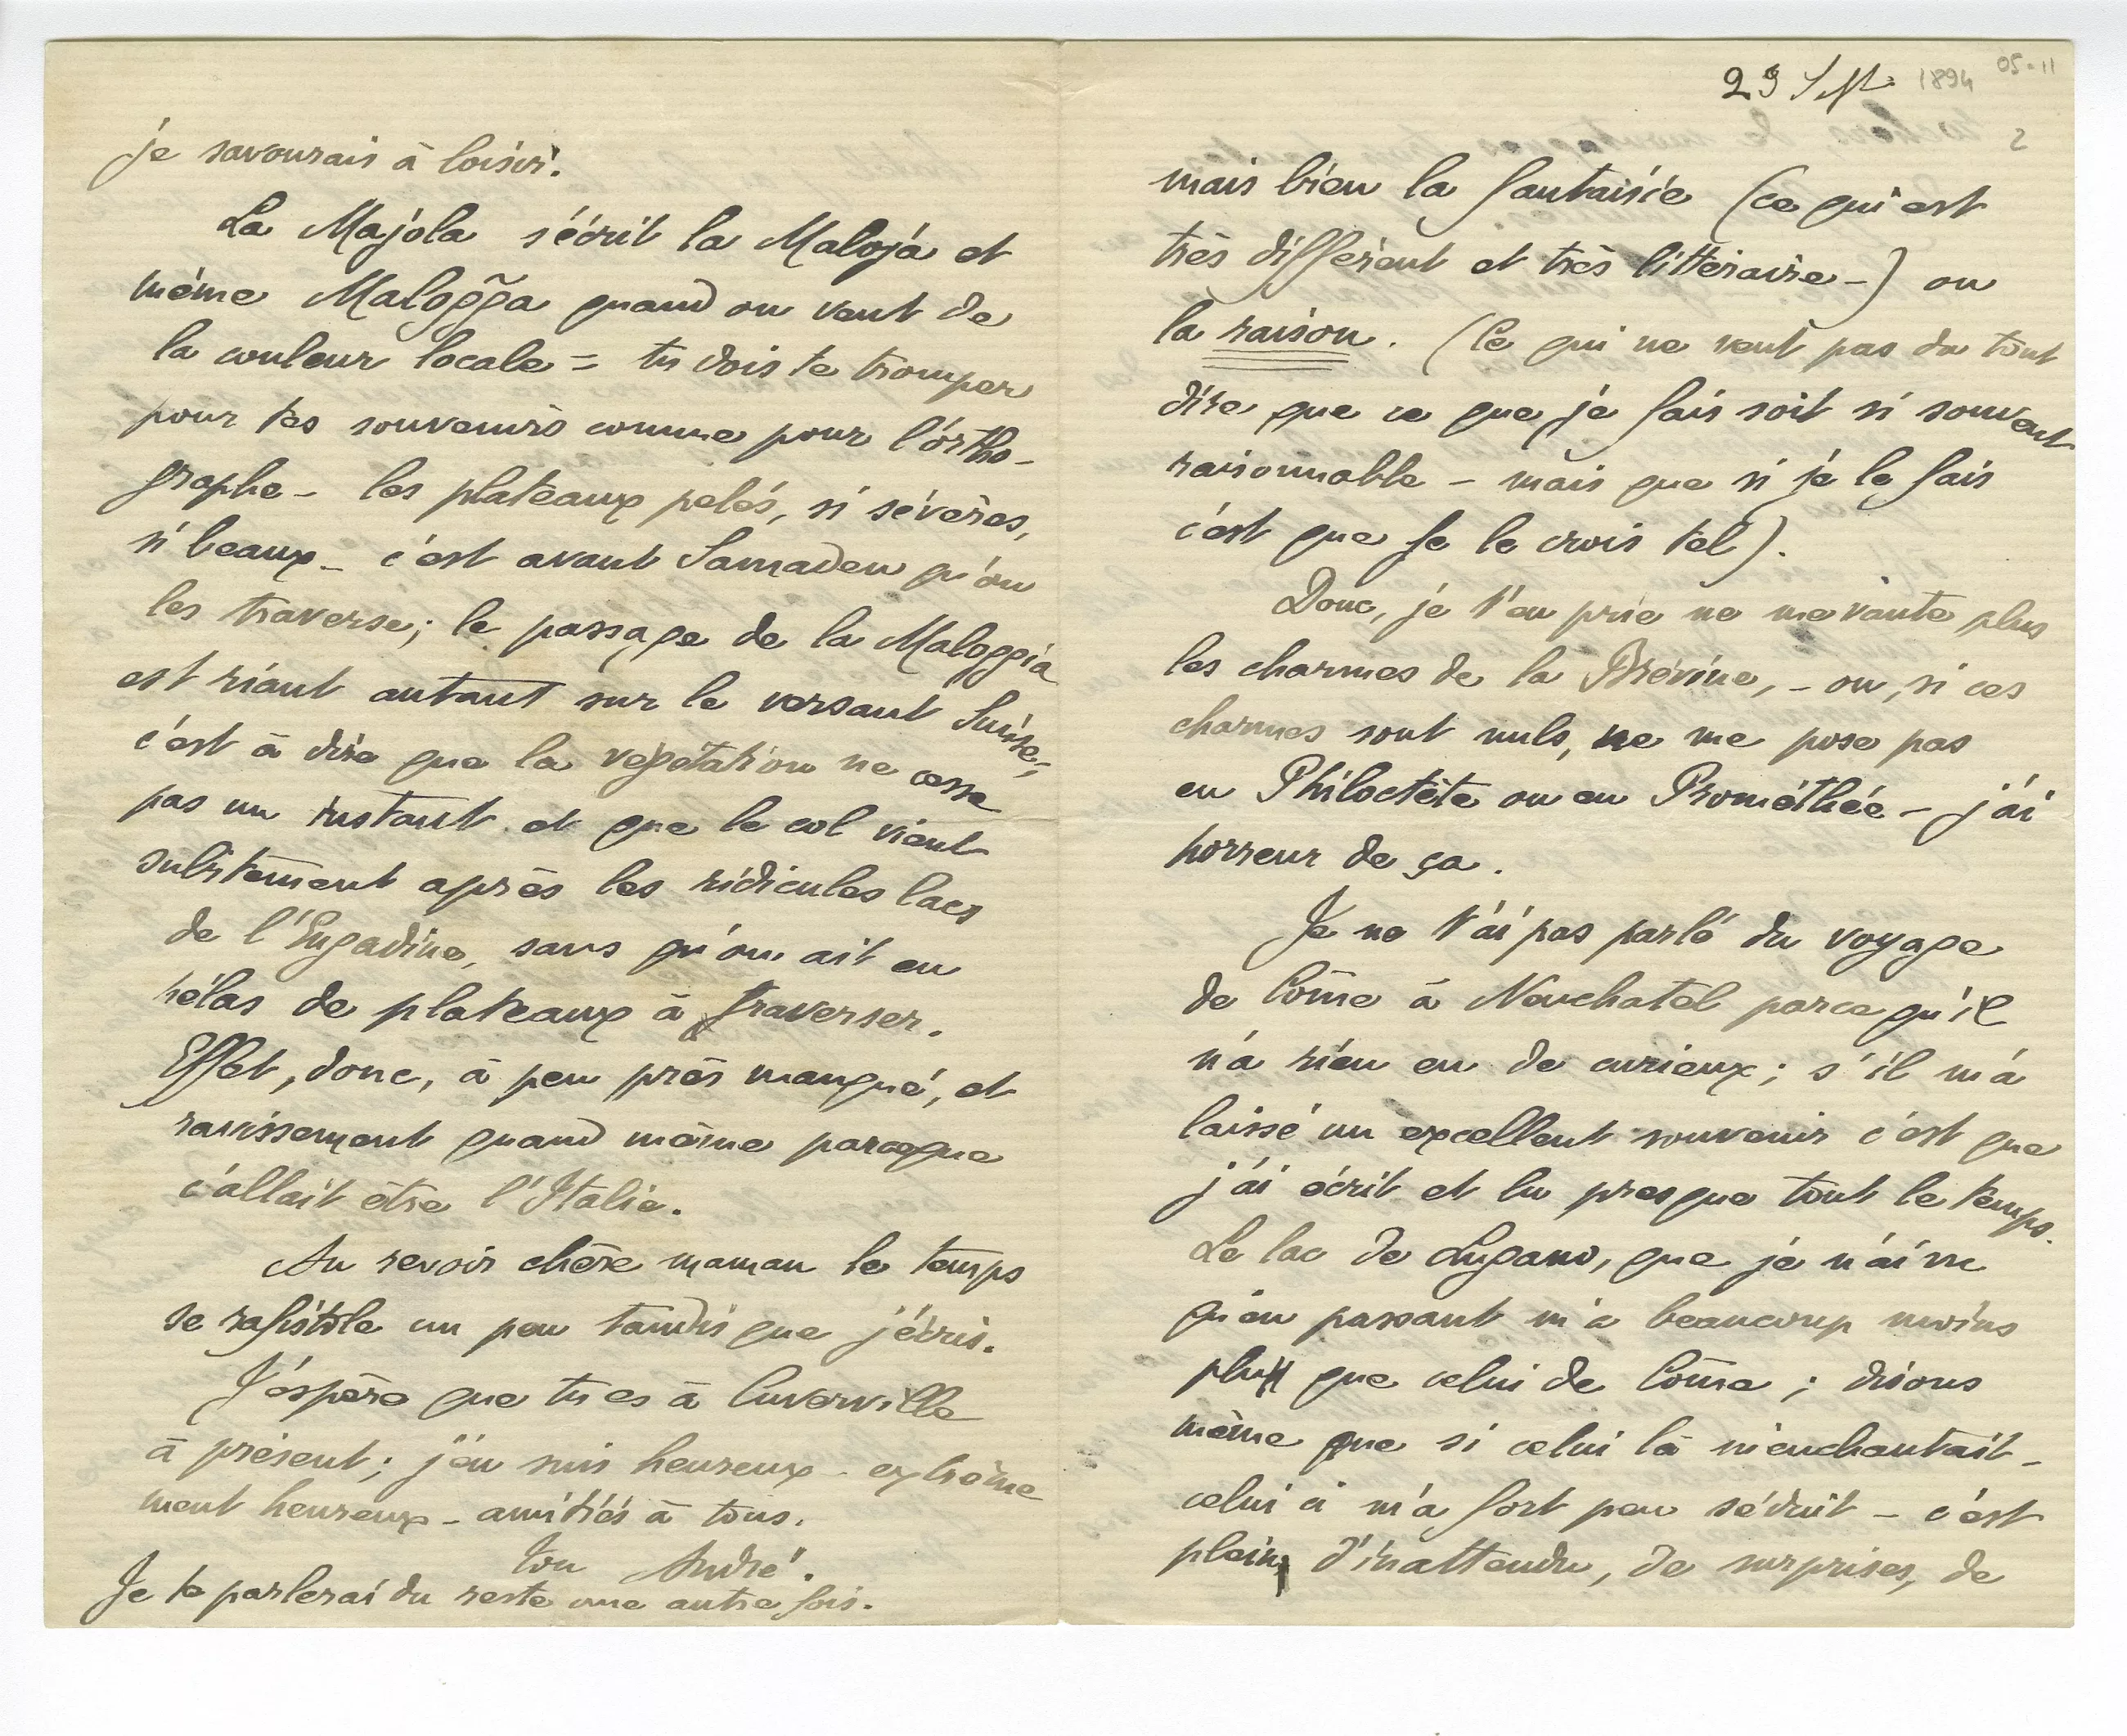 je savourais à loisir.
La Majola s'écrit la Maloja et
même Malogga quand on veut de
la couleur locale = tu dois te tromper
pour tes souvenirs comme pour l'ortho-
graphe - les plateaux pelés, si sévères,
si beaux - c'est avant Samaden qu'on
les traverse; le passage de la Maloggia
est riant autant sur le versant Suisse;
c'est à dire que la végétation ne cesse
pas un instant et que le col vient
subitement après les ridicules lacs
de l'Engadine, sans qu'on ait eu
hélas de plateaux à traverser.
Effet, donc, à peu près manqué, et
ravissement quand même parceque
c'allait être l'Italie.
Au revoir chère maman le temps
se rafistole un peu tandis que j'écris.
J'espère que tu es à Cuverville
à présent; j'en suis heureux - extrême
ment heureux - amitiés à tous.
ton André.
Je te parlerai du reste une autre fois.
23 Sept. 1894 05-11
2
mais bien la fantaisie (ce qui est
très différent et très littéraire -) ou
la raison. (Ce qui ne veut pas du tout
dire que ce que je fais soit si souvent
raisonnable - mais que si je le fais
c'est que je le crois tel).
Donc, je t'en prie ne me vante plus
les charmes de la Brévine, - ou, si ces
charmes sont nuls, ne me pose pas
en Philoctète ou en Prométhée - j'ai
horreur de ça.
Je ne t'ai pas parlé du voyage
de Côme à Neuchatel parce qu'il
n'a rien eu de curieux; s'il m'a
laissé un excellent souvenir c'est que
j'ai écrit et lu presque tout le temps.
Le lac de Lugano, que je n'ai vu
qu'en passant m'a beaucoup moins
plu que celui de Côme; disons
même que si celui là m'enchantait -
celui ci m'a fort peu séduit - c'est
plein d'inattendu, de surprises, de